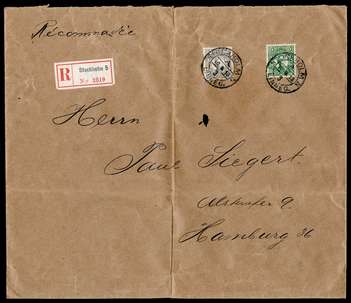 Récommandée
R
Stockholm 5
No 1519
Herrn
Paul Siegert.
Alsterufer 9.
Hamburg 36